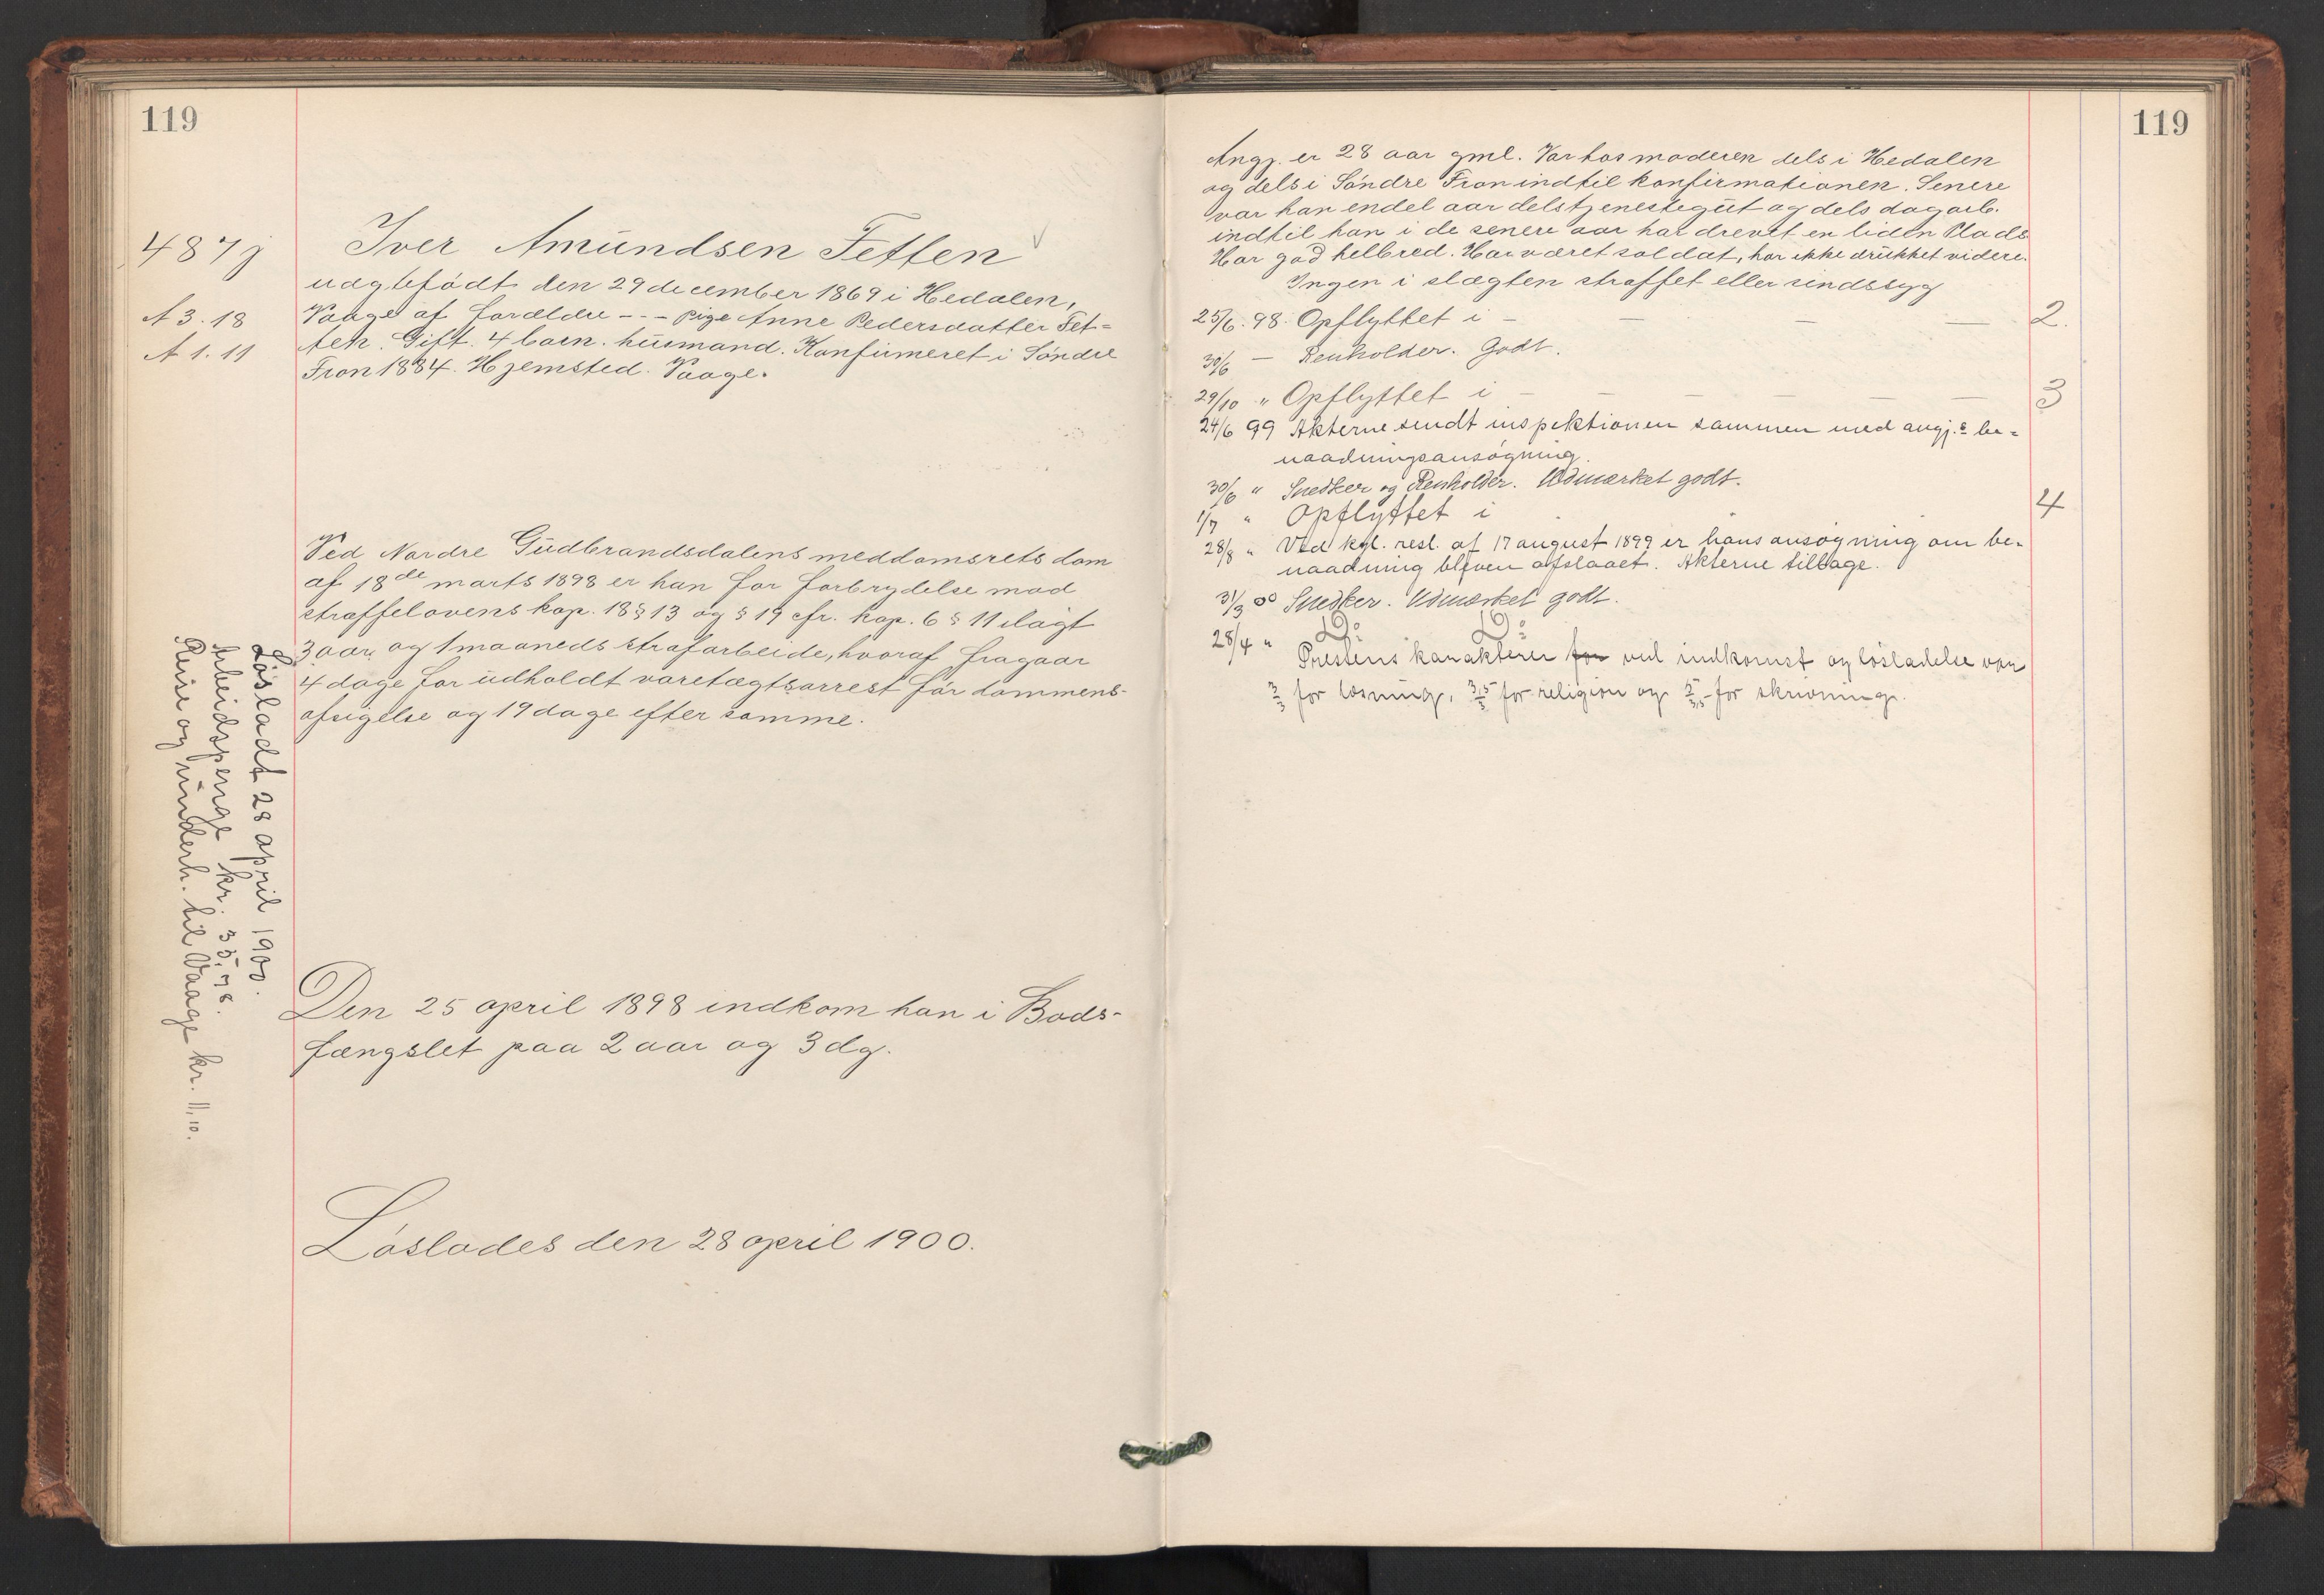 119
487j
A 3. 18
A 1. 11
Iver Amundsen Tetten
uægtefødt den 29 december 1869 i Hedalen,
Vaage af forældre - - - pige Anne Pedersdatter Tet=
ten. Gift. 4 barn. husmand. Konfirmeret i Søndre
Fron 1884. Hjemsted. Vaage.
Ved Nordre Gudbrandsdalens meddomsrets dom
af 18de marts 1898 er han for forbrydelse mod
straffelovens kap. 18 § 13 og § 19 cfr. kap. 6 § 11 ilagt
3 aar og 1 maaneds strafarbeide, hvoraf fragaar
4 dage for udholdt varetægtsarrest før dommens-
afsigelse og 19 dage efter samme.
Løsladt 28 april 1900.
Arbeidspenge kr. 35,78.
Reise og underh. til Vaage kr. 11,10.
Den 25 april 1898 indkom han i Bods-
fængslet paa 2 aar og 3 dg.
Løslades den 28 april 1900.
119
Angj. er 28 aar gml. Var hos moderen dels i Hedalen
og dels i Søndre Fron indtil konfirmationen. Senere
var han endel aar dels tjenestegut og dels dagarb.
indtil han i de senere aar har drevet en liden Plads
Har god helbred. Har været soldat, har ikke drukket videre.
Ingen i slægten straffet eller sindssyg
25/6. 98. Opflyttet i - — — — — 2.
30/6 — Renholder. Godt.
29/10 " Opflyttet i - - - - - - 3
24/6 99 Akterne sendt inspektionen sammen med angj.s be-
naadningsansøgning.
30/6 " Snedker og Renholder. Udmærket godt.
1/7 " Opflyttet i 4
28/8 " Ved kgl. resl. af 17 august 1899 er hans ansøgning om be-
naadning bleven afslaaet. Akterne tilbage.
31/3 00 Snedker. Udmærket godt.
28/4 " Do Do
Prestens karakterer for ved indkomst og løsladelse var
3/3 for læsning, 3,5/3 for religion og for skrivning.